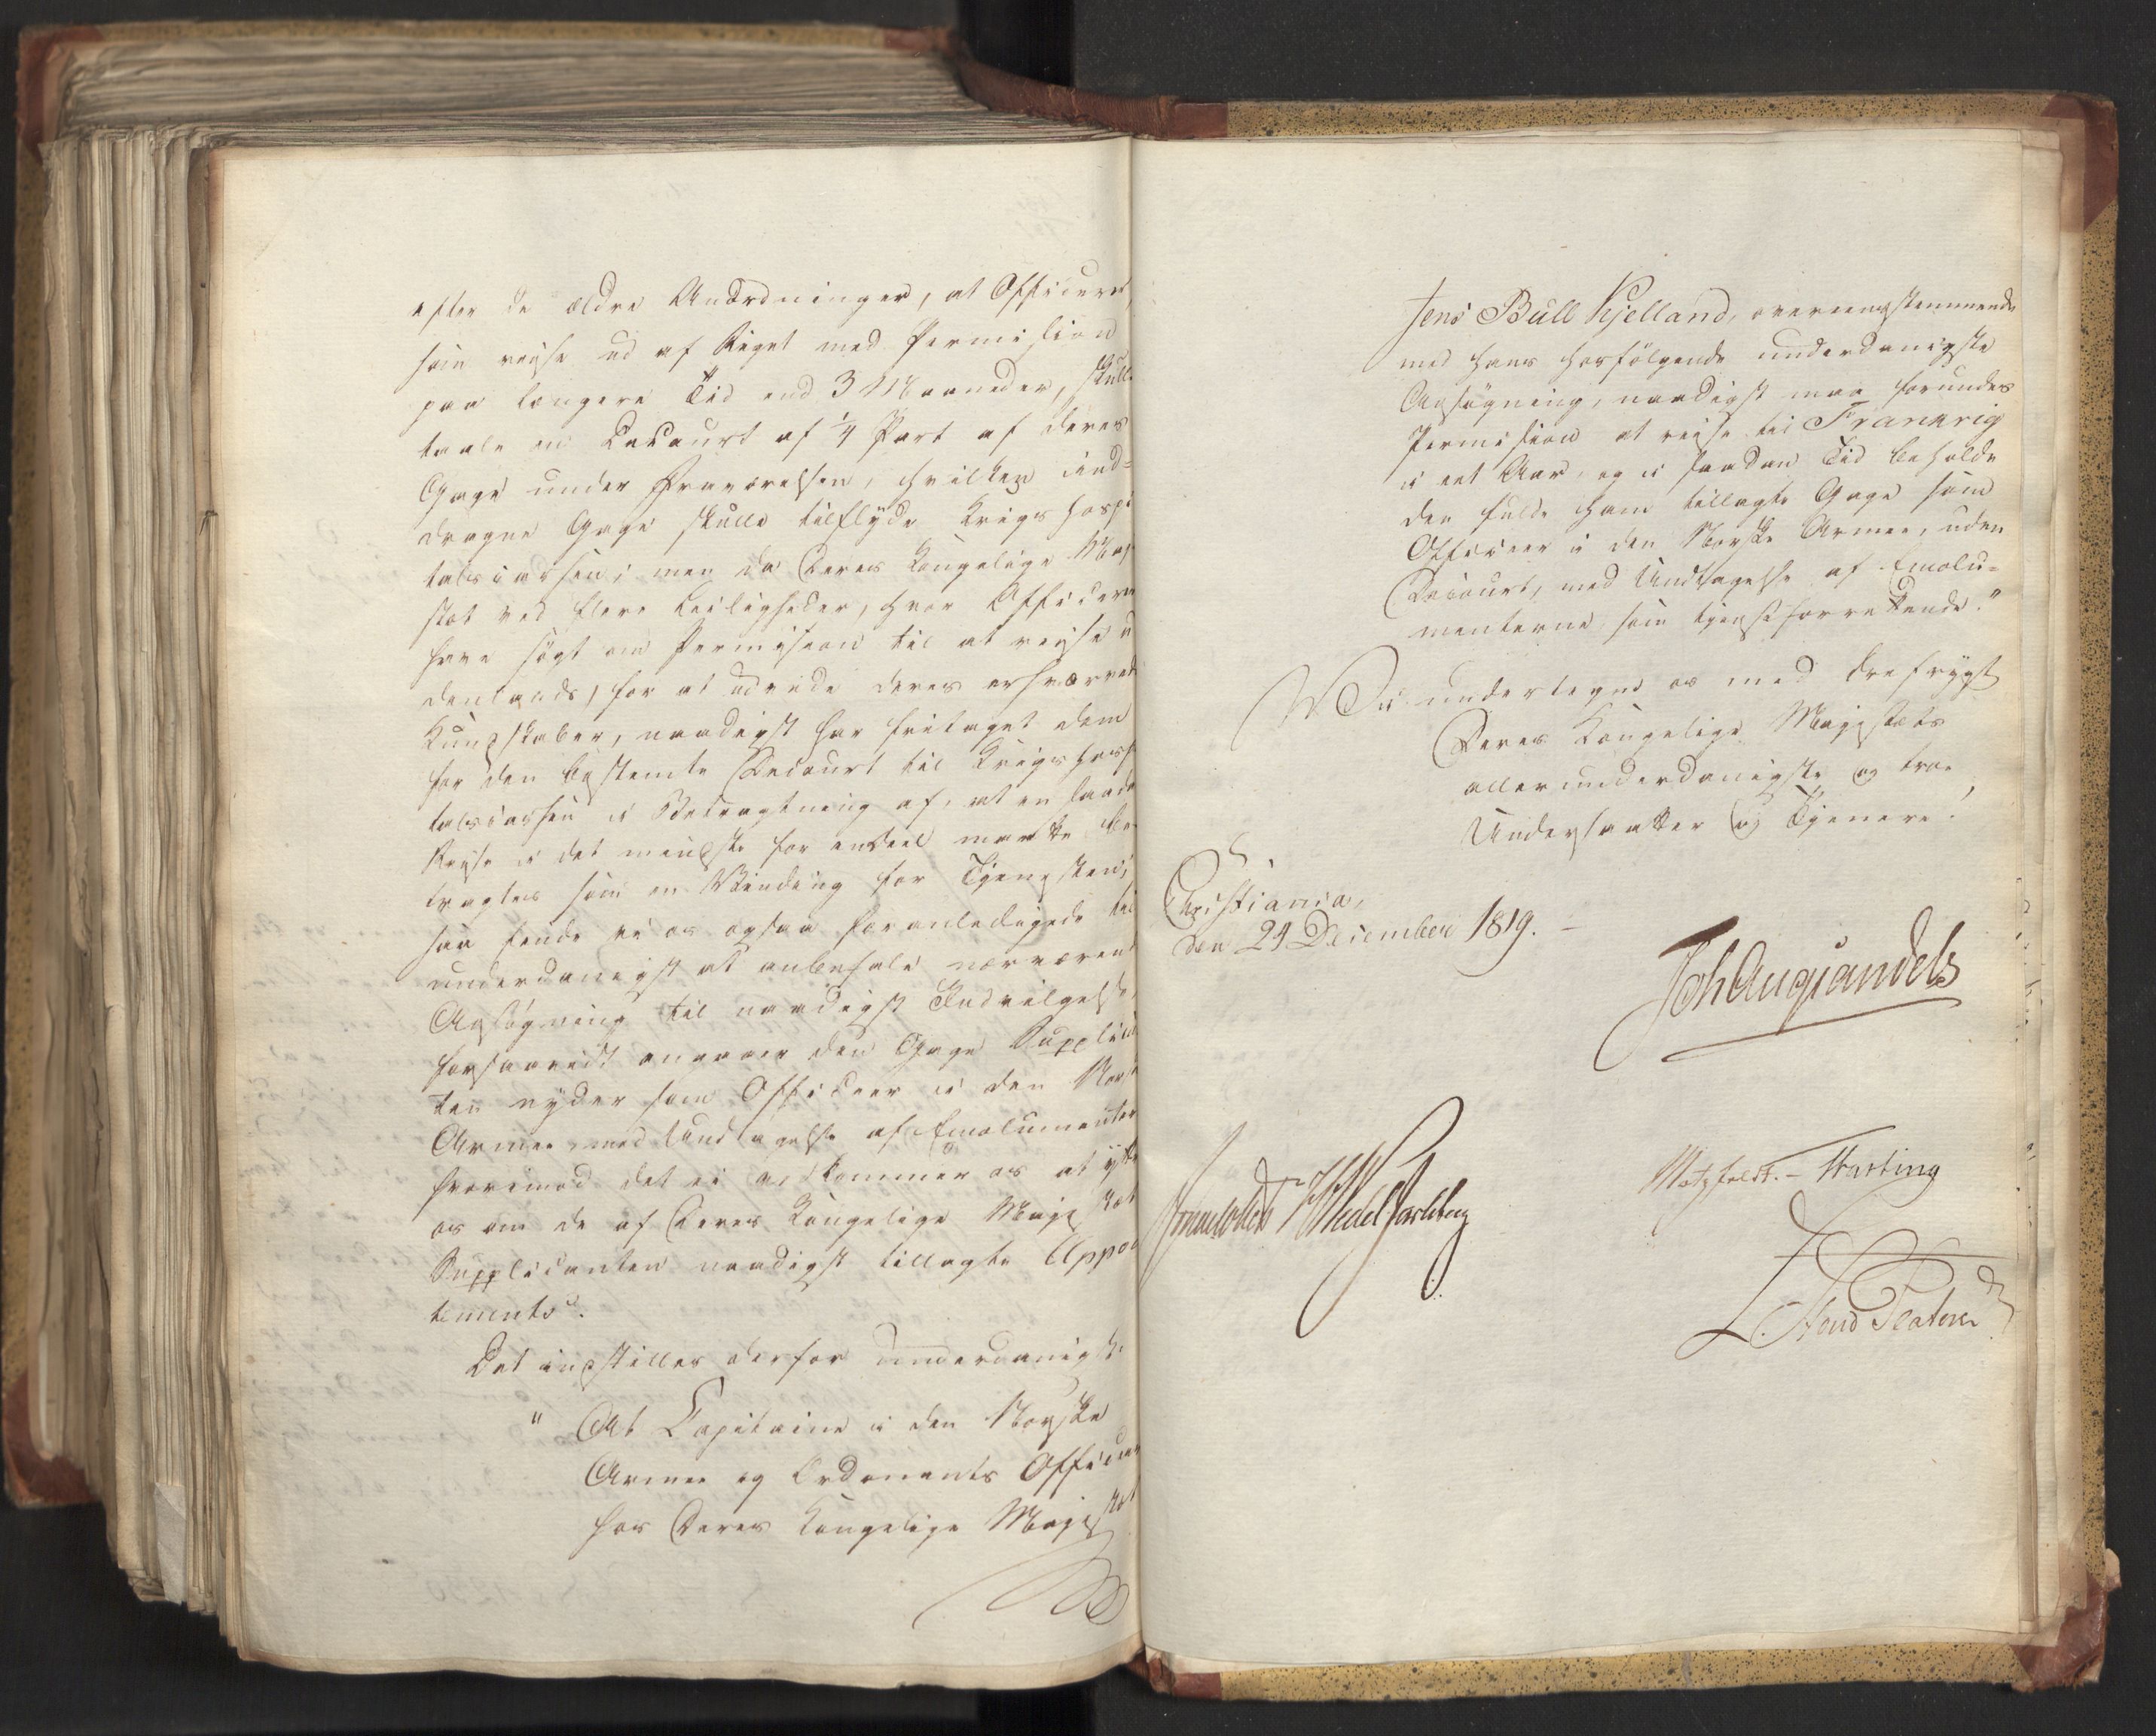 efter de ældre Anordninger, at Officerer,
som reise ud af Riget med Permission
paa længere Tid end 3 Maaneder, skulle
taale en Decourt af 1/4 Part af deres
Gage under Fraværelsen, hvilken ind-
dragne Gage skulle tilflyde Krigshospi
talscassen; men da Deres Kongelige Maje
stæt ved flere Leiligheder, hvor Officerer
have søgt om Permission til at reise u
denlands, for at udvide deres erhværvede
Kundskaber, naadigst har fritaget dem
for den bestemte Decourt til Krigshospi
talscassen i Betragtning af, at en saadan
Reise i det mindste for endeel maatte be
tragtes som en Vinding for Tjenesten;
saa finde vi os ogsaa foranledigede til
underdanigst at anbefale nærværende
Ansøgning til naadigst Indvilgelse,
forsaavidt angaaer den Gage Supplican
ten nyder som Officeer i den Norske
Armee, med Undtagelse af Emolumenter
hvorimod det ei tilkommer os at yttre
os om de af Deres Kongelige Majestæt
Supplicanten naadigst tillagte Appoin
tements.
Det indstilles derfor underdanigst:
" At Capitaine i den Norske
Armee og Ordonents Officeer
hos Deres Kongelige Majestæt
Jens Bull Kjelland, overeensstemmende
med hans hosfölgende underdanigste
Ansögning, naadigst maa forundes
Permission at reise til Frankrig
i eet Aar, og i saadan Tid beholde
den fulde ham tillagte Gage som
Officeer i den Norske Armee, uden
Decourt, med Undtagelse af Emolu-
menterne som tjenstforrettende."
Vi undertegne os med dybeste
Deres Kongelige Majestæts
allerunderdanigste og troe
Undersaatter og Tjenere!
Christiania,
den 24 December 1819.
Joh Aug Sandels
Motzfeldt. - Fasting
Sommerhielm HWedel Jarlsberg
L. Stoud Platou